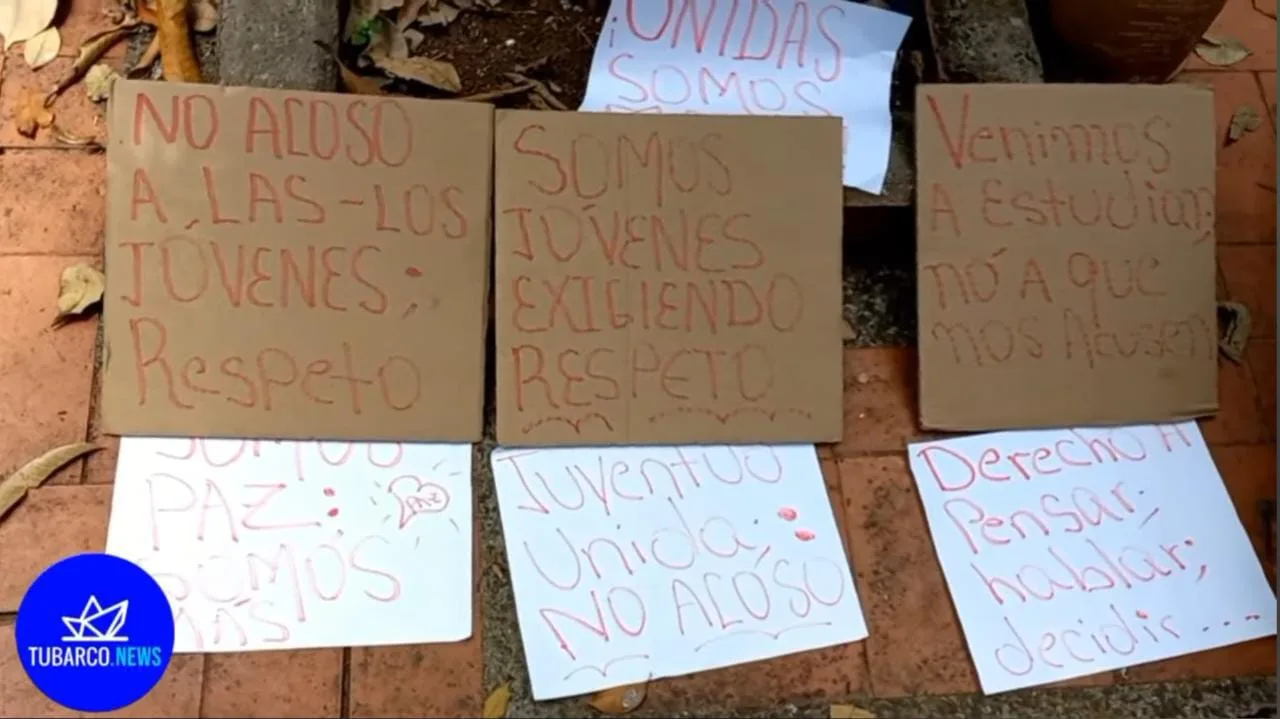 ¡UNIDAS
SOMOS
NO ACOSO
A LAS-LOS
JÓVENES;
Respeto
SOMOS
JÓVENES
EXIGIENDO
RESPETO
Venimos
A Estudiar;
nó A que
nos Acusen
SOMOS
PAZ:
PAZ
SOMOS
MÁS
Juventud
Unida;
NO ACOSO
Derecho A
Pensar;
hablar;
decidir...
TUBARCO.NEWS